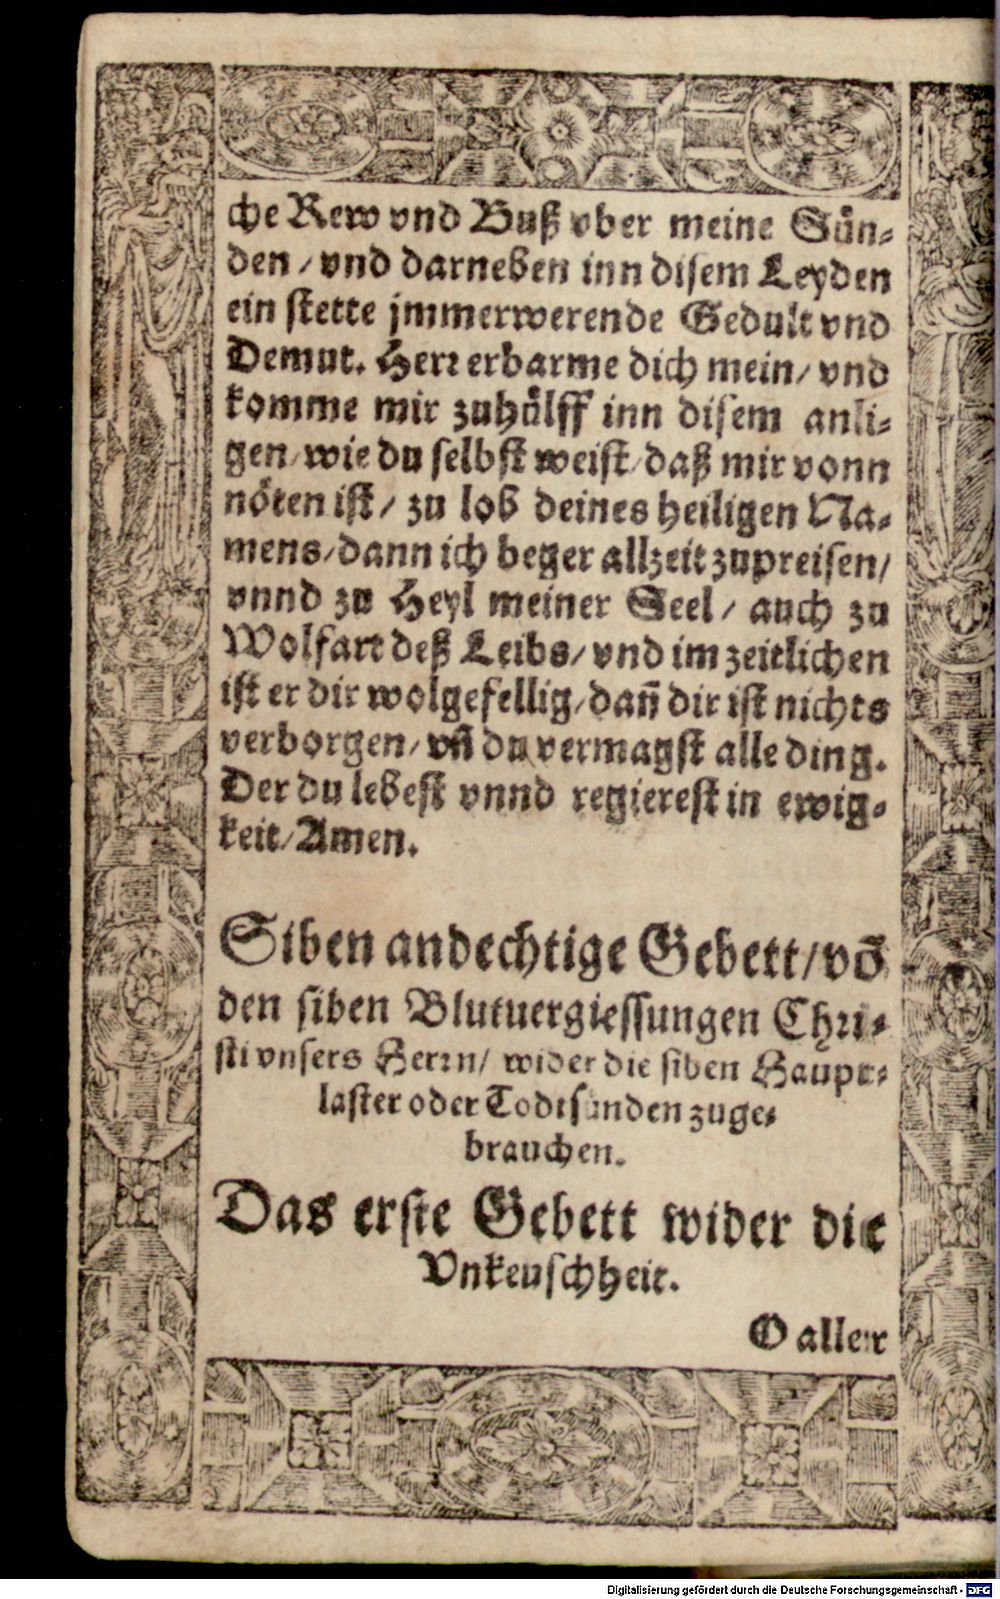 che Rew vnd Buß vber meine Sün⸗
den / vnd darneben inn disem Leyden
ein stette jmmerwerende Gedult vnd
Demut. Herr erbarme dich mein / vnd
komme mir zuhülff inn disem anli⸗
gen / wie du selbst weist / daß mir vonn
nöten ist / zu lob deines heiligen Na⸗
mens / dann ich beger allzeit zupreisen /
vnnd zu Heyl meiner Seel / auch zu
Wolfart deß Leibs / vnd im zeitlichen
ist er dir wolgefellig / dañ dir ist nichts
verborgen / vñ du vermagst alle ding.
Der du lebest vnnd regierest in ewig⸗
keit / Amen.
Siben andechtige Gebett / võ
den siben Blutuergiessungen Chri⸗
sti vnsers Herrn / wider die siben Haupt⸗
laster oder Todtsünden zuge⸗
brauchen.
Das erste Gebett wider die
Vnkeuschheit.
O aller
Digitalisierung gefördert durch die Deutsche Forschungsgemeinschaft - DFG